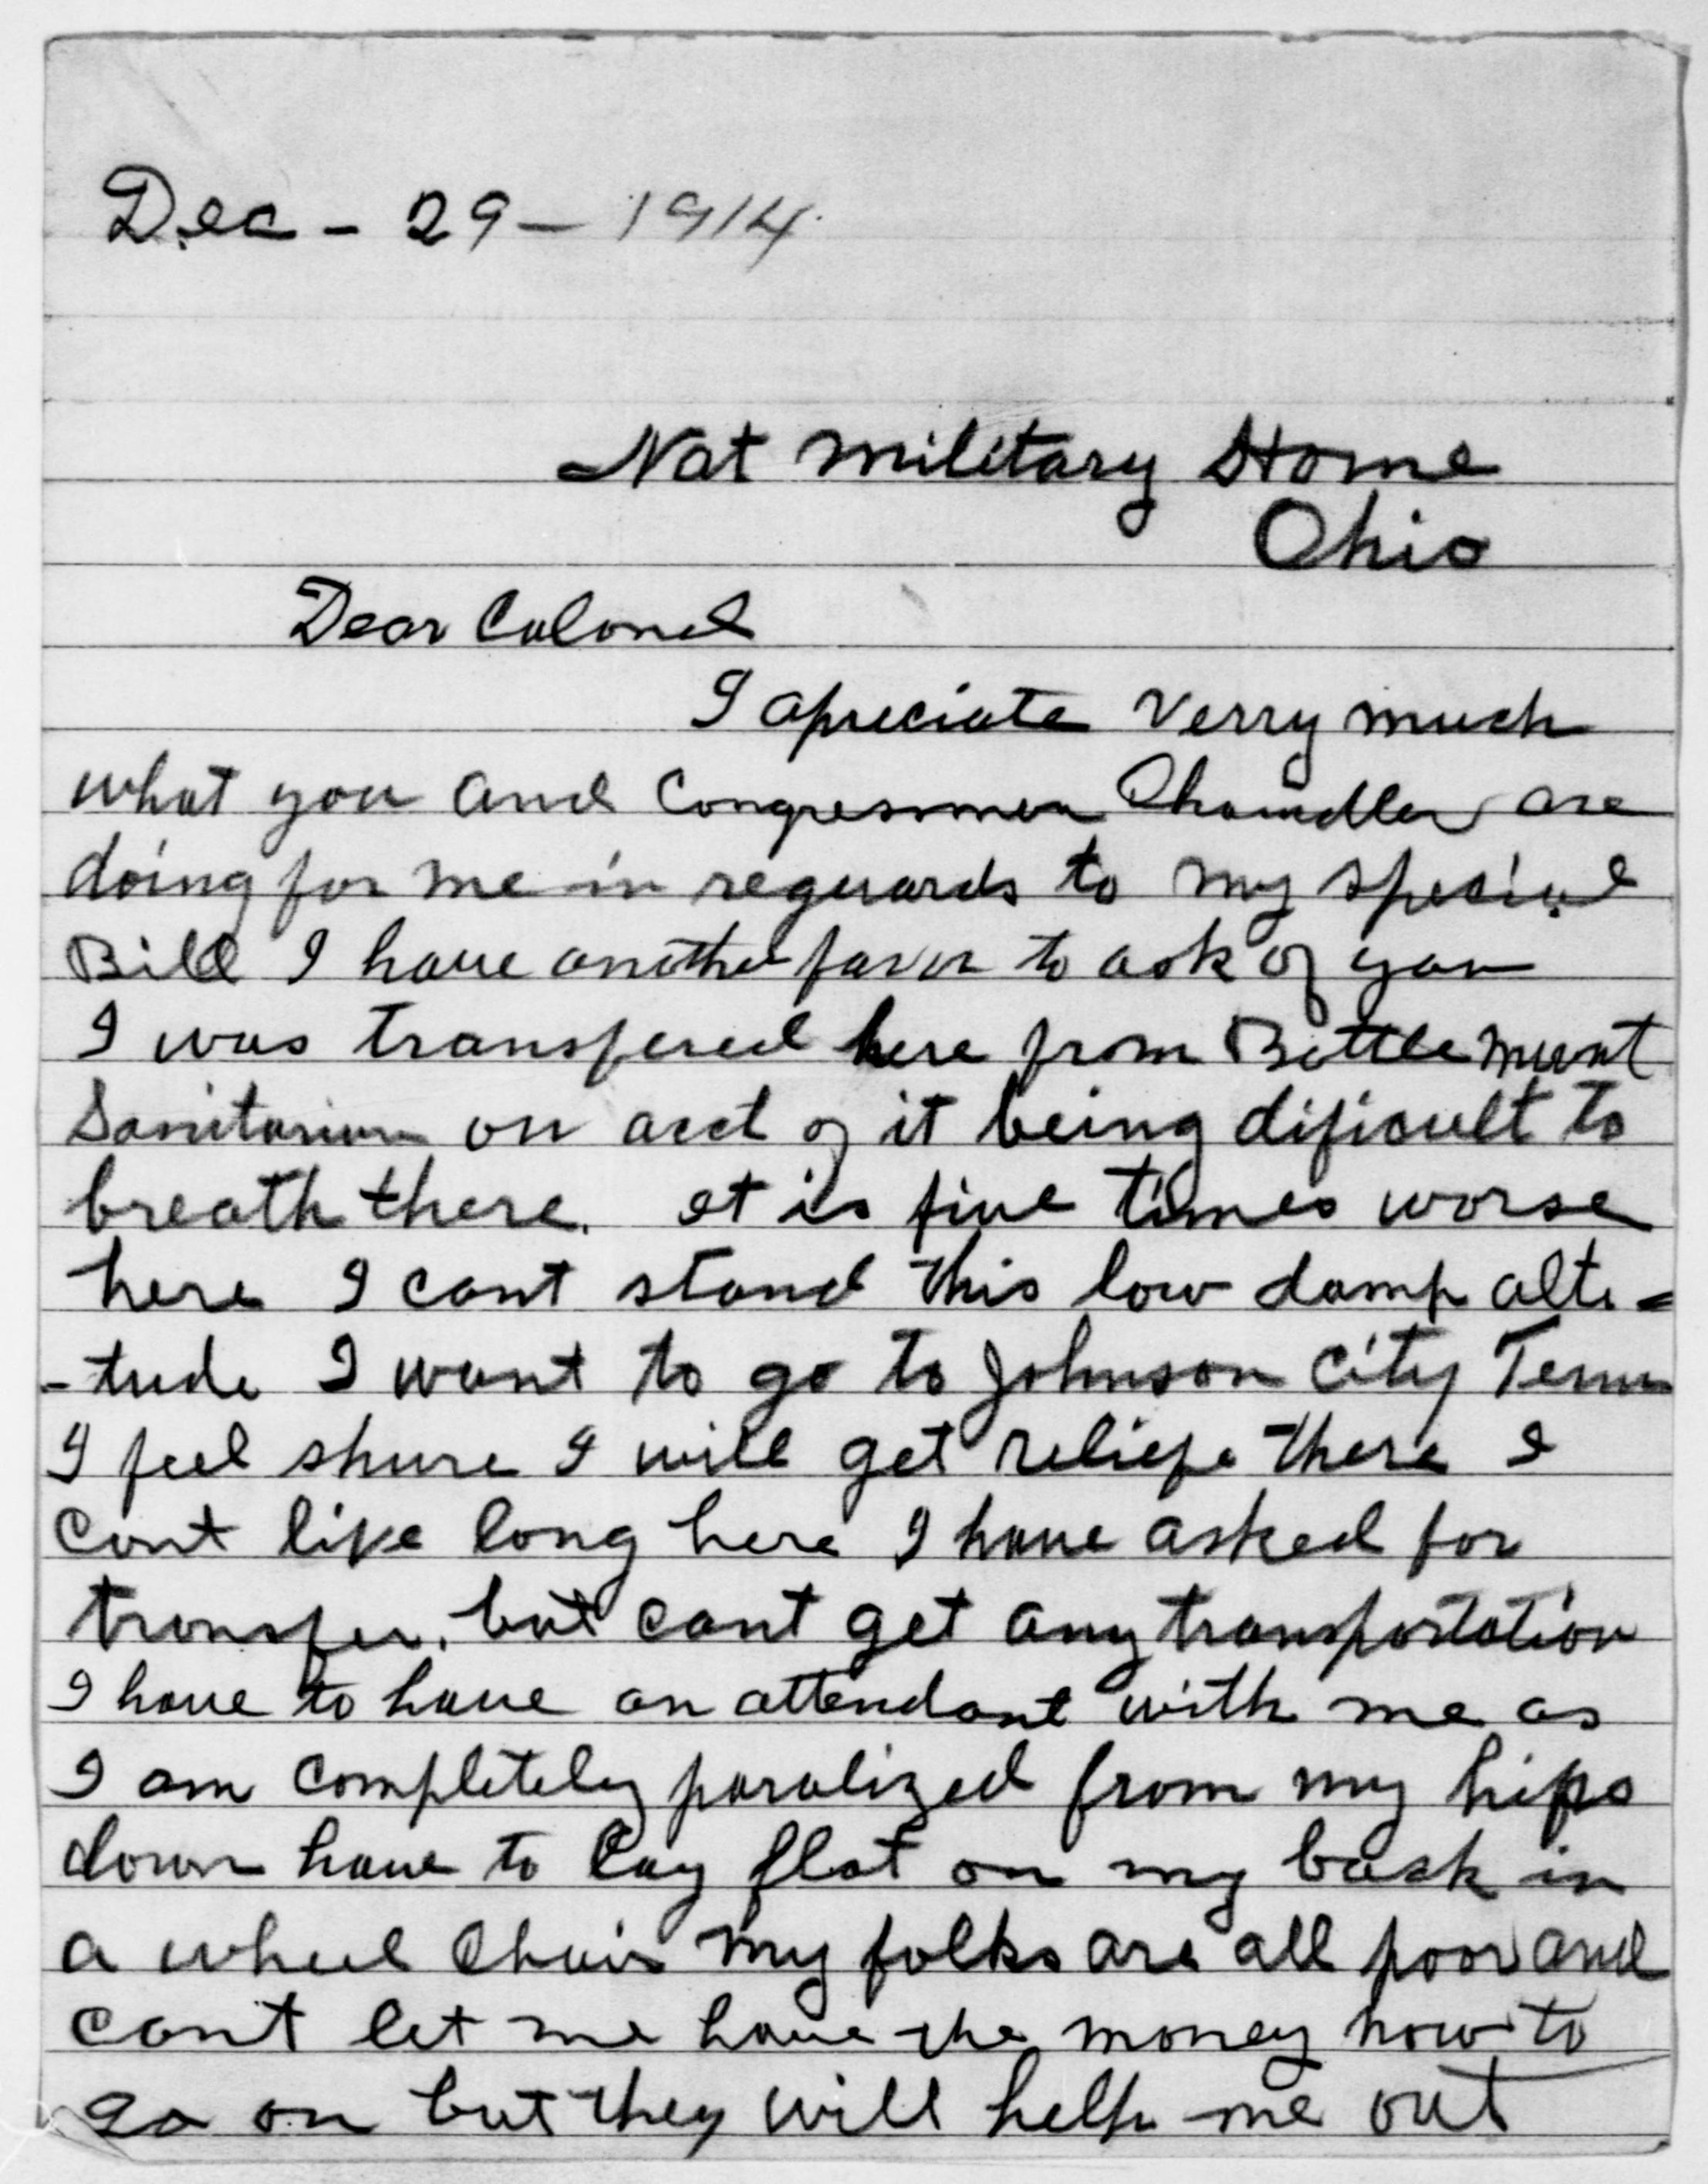 Dec - 29 - 1914
Nat Military Home
Ohio
Dear Colonel
I apreciate verry much
what you and Congressmen Chandler are
doing for me in reguards to my special
Bill I have another favor to ask of you
I was transfered here from Battle Mount
Sanitarium on acct of it being dificult to
breath there. It is five times worse
here I cant stand this low damp alti=
-tude I want to go to Johnson City Tenn
I feel shure I will get reliefe there I
cant live long here I have asked for
transfer. but cant get any transportation
I have to have an attendant with me as
I am completely paralized from my hips
down have to lay flat on my back in
a wheel chair my folks are all poor and
can't let me have the money now to
go on but they will help me out